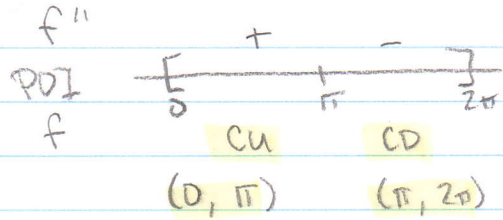 f"
+ -
PDI [ ]
0 π 2π
f CU CD
(0, π) (π, 2π)